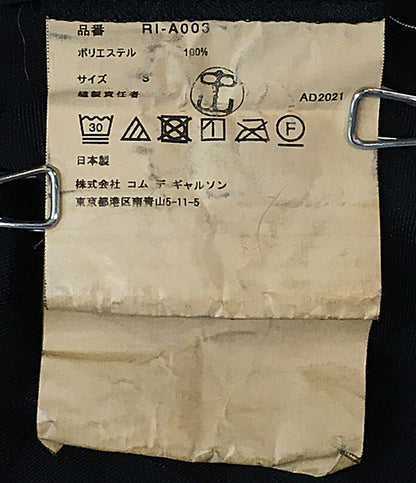 品番 RI-A003
ポリエステル 100%
サイズ S
縫製責任者
AD2021
30
F
日本製
株式会社 コム デ ギャルソン
東京都港区南青山5-11-5